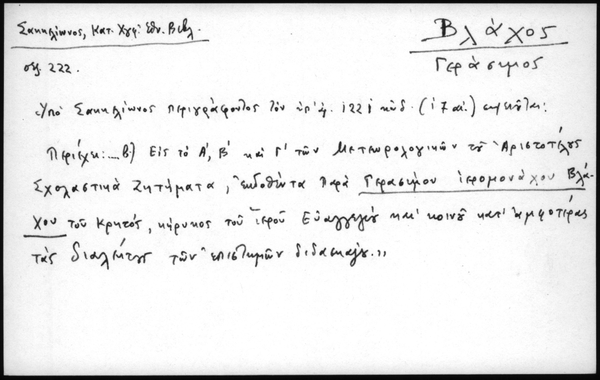 Σακκελίωνος, Κατ. Χγφ. Εθν. Βιβλ.
Βλάχος
Γεράσιμος
σελ. 222.
«Υπό Σακκελίωνος περιγράφοντος τον υπ' αρ. 1221 κώδ. (17 αι.) σημειούται:
Περιέχει:....β) Εις το Α', Β' και Γ' των Μετεωρολογικών του Αριστοτέλους
Σχολαστικά Ζητήματα, "εκδοθέντα παρά Γερασίμου ιερομονάχου Βλά-
χου του Κρητός, κήρυκος του ιερού Ευαγγελίου και κοινού κατ' αμφοτέρας
τας διαλέκτους των επιστημών διδασκάλου.»